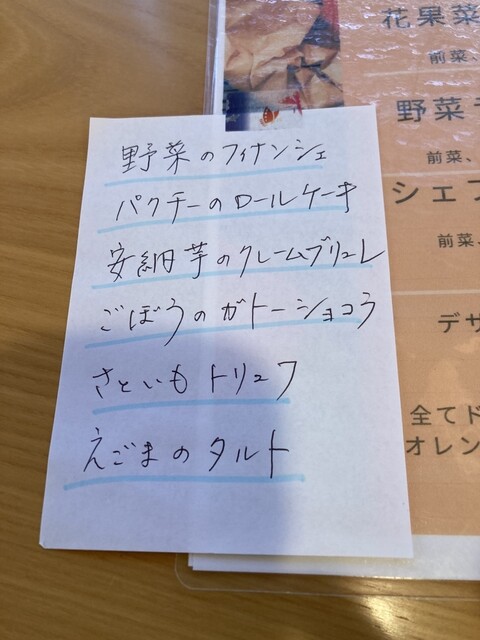 野菜のフィナンシェ
パクチーのロールケーキ
安納芋のクレームブリュレ
ごぼうのガトーショコラ
さといもトリュフ
えごまのタルト
花果菜
前菜、
野菜
前菜、
シェフ
前菜、
デザ
全てド
オレン